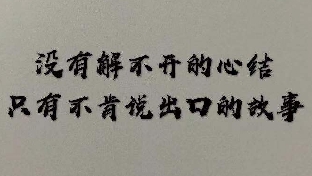 没有解不开的心结
只有不肯说出口的故事